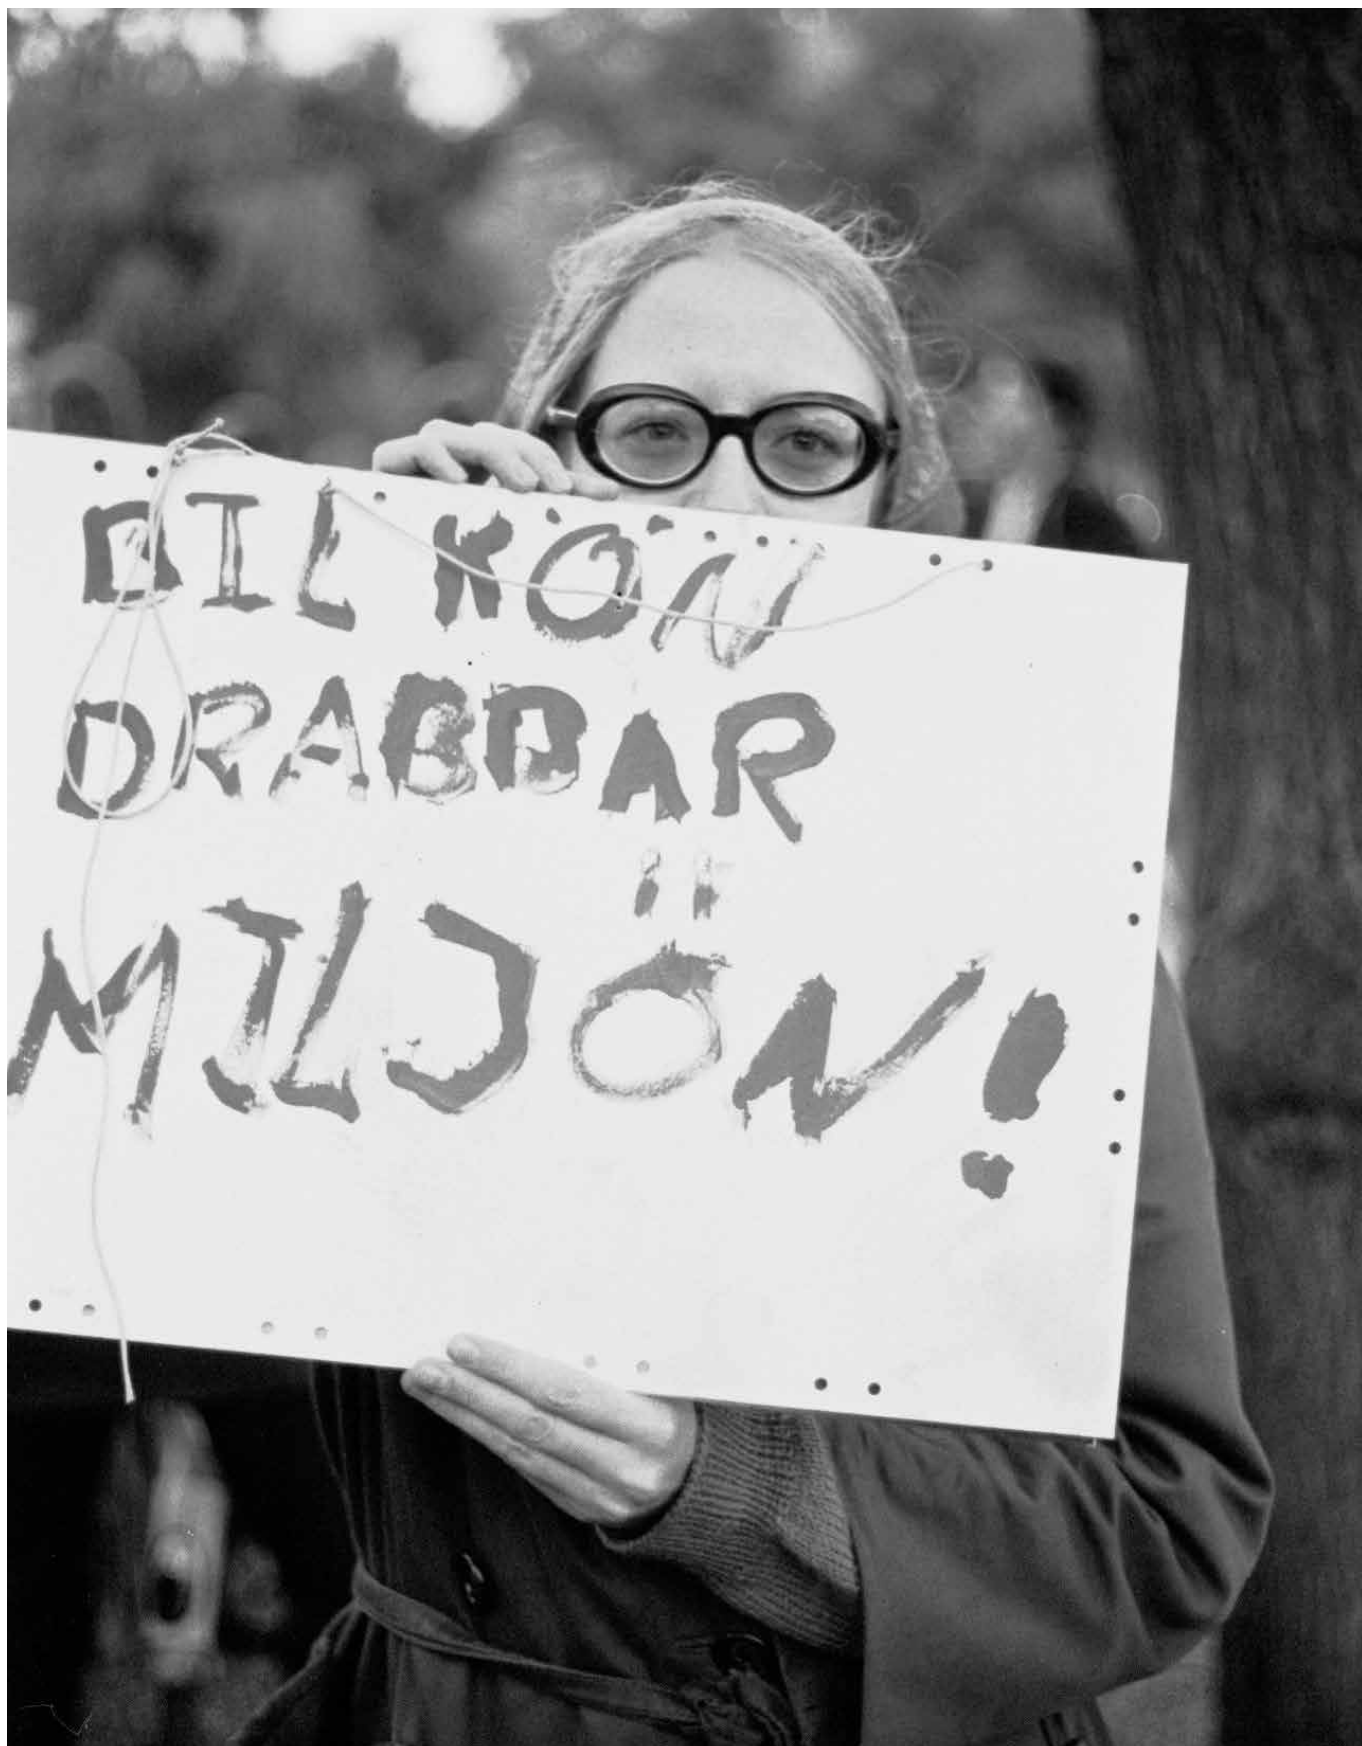 BIL KÖN
DRABBAR
MILJÖN!